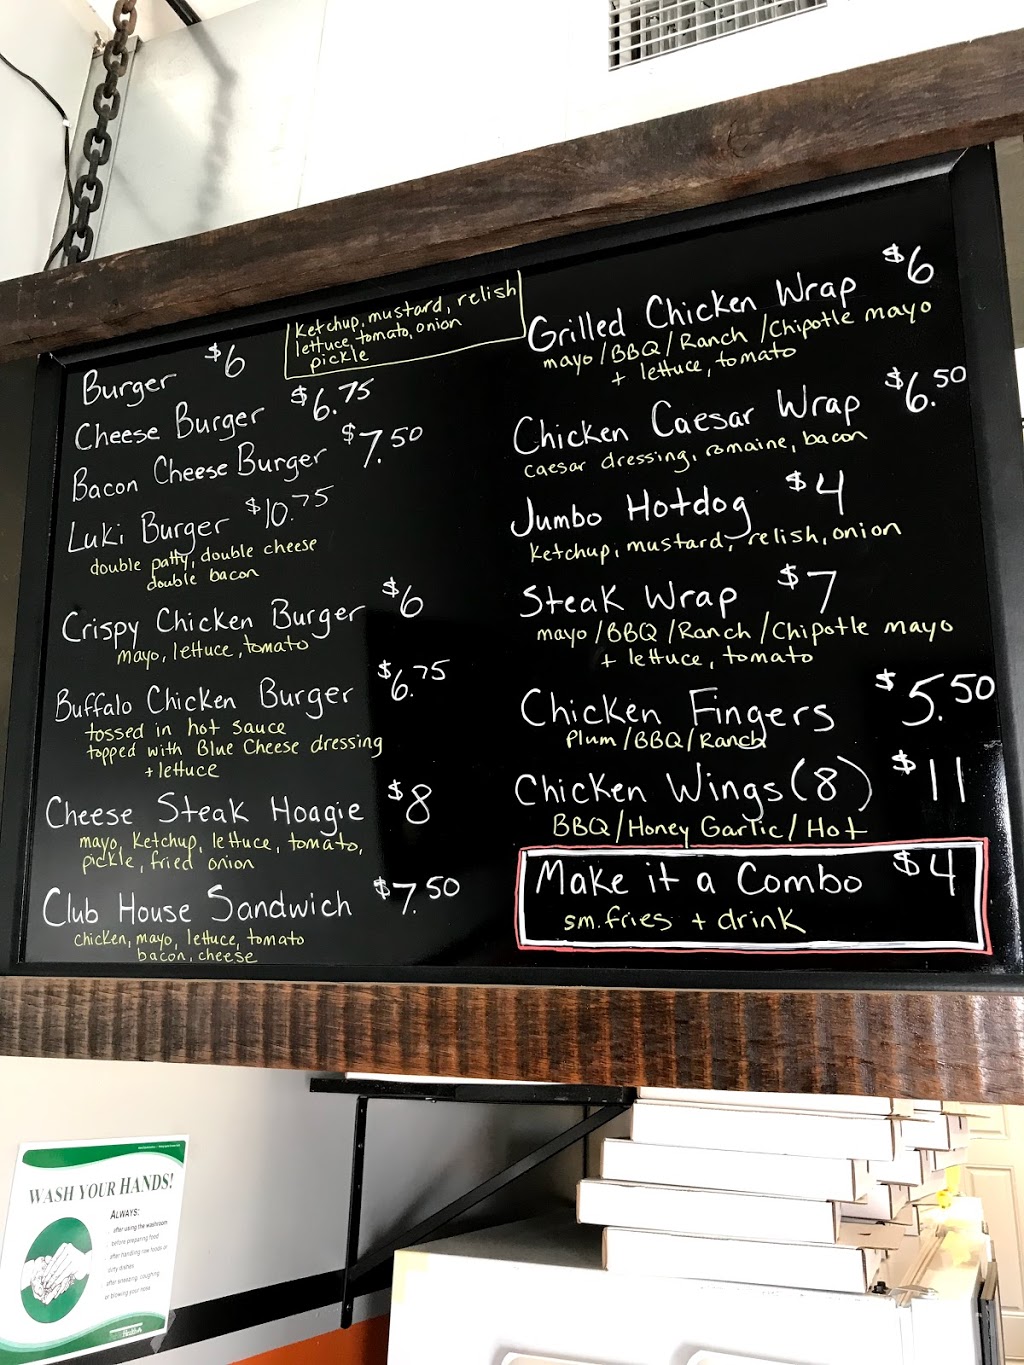 Ketchup, mustard, relish
lettuce, tomato, onion
pickle
Burger $6
Cheese Burger $6.75
Bacon Cheese Burger $7.50
Luki Burger $10.75
double patty, double cheese
double bacon
Crispy Chicken Burger $6
mayo, lettuce, tomato
Buffalo Chicken Burger $6.75
tossed in hot sauce
topped with Blue Cheese dressing
+ lettuce
Cheese Steak Hoagie $8
mayo, Ketchup, lettuce, tomato,
pickle, fried onion
Club House Sandwich $7.50
chicken, mayo, lettuce, tomato
bacon, cheese
Grilled Chicken Wrap $6
mayo/BBQ/Ranch/Chipotle mayo
+ lettuce, tomato
Chicken Caesar Wrap $6.50
caesar dressing, romaine, bacon
Jumbo Hotdog $4
Ketchup, mustard, relish, onion
Steak Wrap $7
mayo/BBQ/Ranch/Chipotle mayo
+ lettuce, tomato
Chicken Fingers $5.50
Plum/BBQ/Ranch
Chicken Wings (8) $11
BBQ/Honey Garlic/Hot
Make it a Combo $4
sm. fries + drink
WASH YOUR HANDS!
ALWAYS:
after using the washroom
before preparing food
after handling raw foods or
dirty dishes
after sneezing, coughing
or blowing your nose